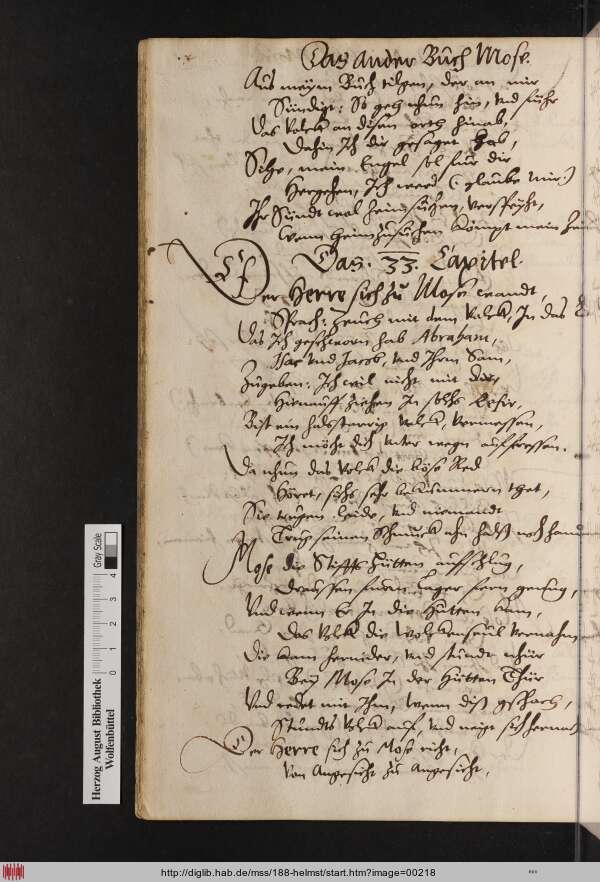 Das ander Buch Mose.
Aus meynn Buch tilgen, der an mir
Sündigt: So geh nhun hin, vnd fuhr
Das Volck an disen orth hinab,
Dahin Ich dir gesaget hab,
Sihe, mein Engel sol fur dir
Hergehen, Ich werd (: glaube mir:)
Ihr Sündt wol heimsuchen,
Wann heimzusuchen kömpt mein
Das. 33. Capitel.
Der Herre sich zu Mose wandt,
Sprach: zeuch mit dem Volck, In das
Das Ich geschworn hab Abraham,
Isac vnd Jacob, vnd Ihrm Sam,
Zugeben: Ich wil nicht mit
Hienauff ziehen In
Bist ein halsstarrig Volck, vermessen,
Ich möcht dich vnter wegn auffressen.
Da nhun das Volck die böse Red
Höret, sichs sehr bekummern thet,
Sie trugen leide, vnd niemandt
Trug seinen Schmuck ahn halß noch
Mose die Stiffts Hütten auffschlug,
Draussen furm Lager fern genug,
Vnd wenn Er In die Hütten kam,
Das Volck die Wolckenseul vernahm
Die kam hernider, vnd stunde
Bey Mose In der Hütten Thür
Vnd redet mit Ihm, wenn diß gschach,
Stundts Volck auf, vnd neigt sich
Der Herre sich zu Mose
Von Angesicht zu Angesicht,
Herzog August Bibliothek
Wolfenbüttel
Gray Scale
0 1 2 3 4
http://diglib.hab.de/mss/188-helmst/start.htm?image=00218